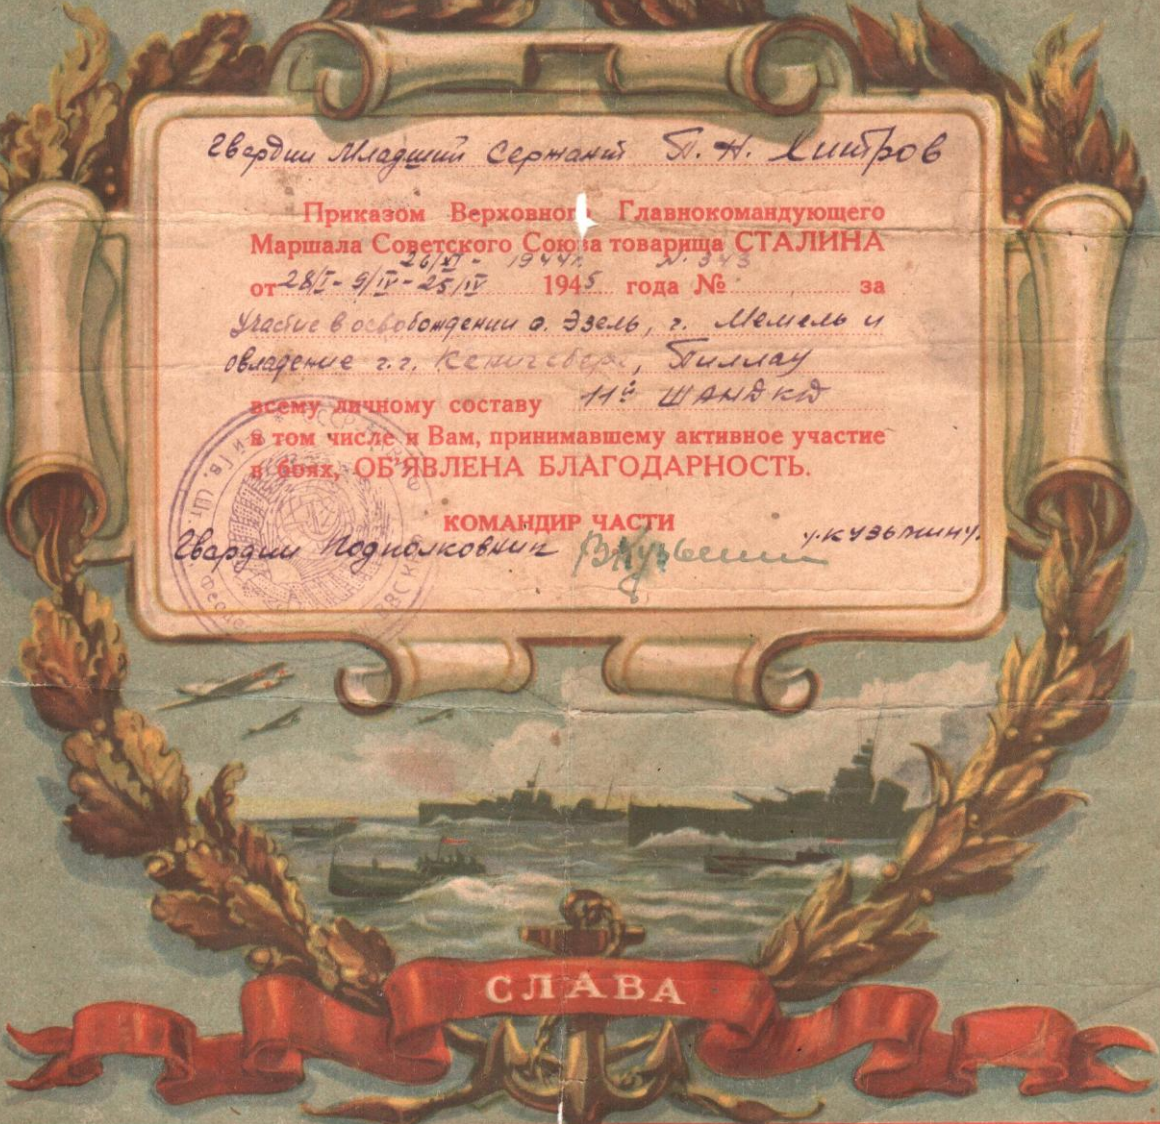 Гвардии Младший Сержант П. Н. Хитров
Приказом Верховного Главнокомандующего
Маршала Советского Союза товарища СТАЛИНА
26/XI - 1944г. № 343
от 28/I - 9/IV - 25/IV 1945 года № за
Участие в освобождении о. Эзель, г. Мемель и
овладение г.г. Кенигсберг, Пиллау
всему личному составу 11й ШАНДКД
в том числе и Вам, принимавшему активное участие
в боях, ОБ'ЯВЛЕНА БЛАГОДАРНОСТЬ.
КОМАНДИР ЧАСТИ
Гвардии Подполковник /У.КУЗЬМИНУ.
СЛАВА